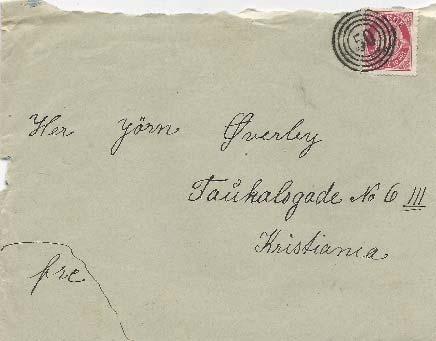 50
Her Jörn Øverby
Taükalsgade No 6 III
Kristiania
fre